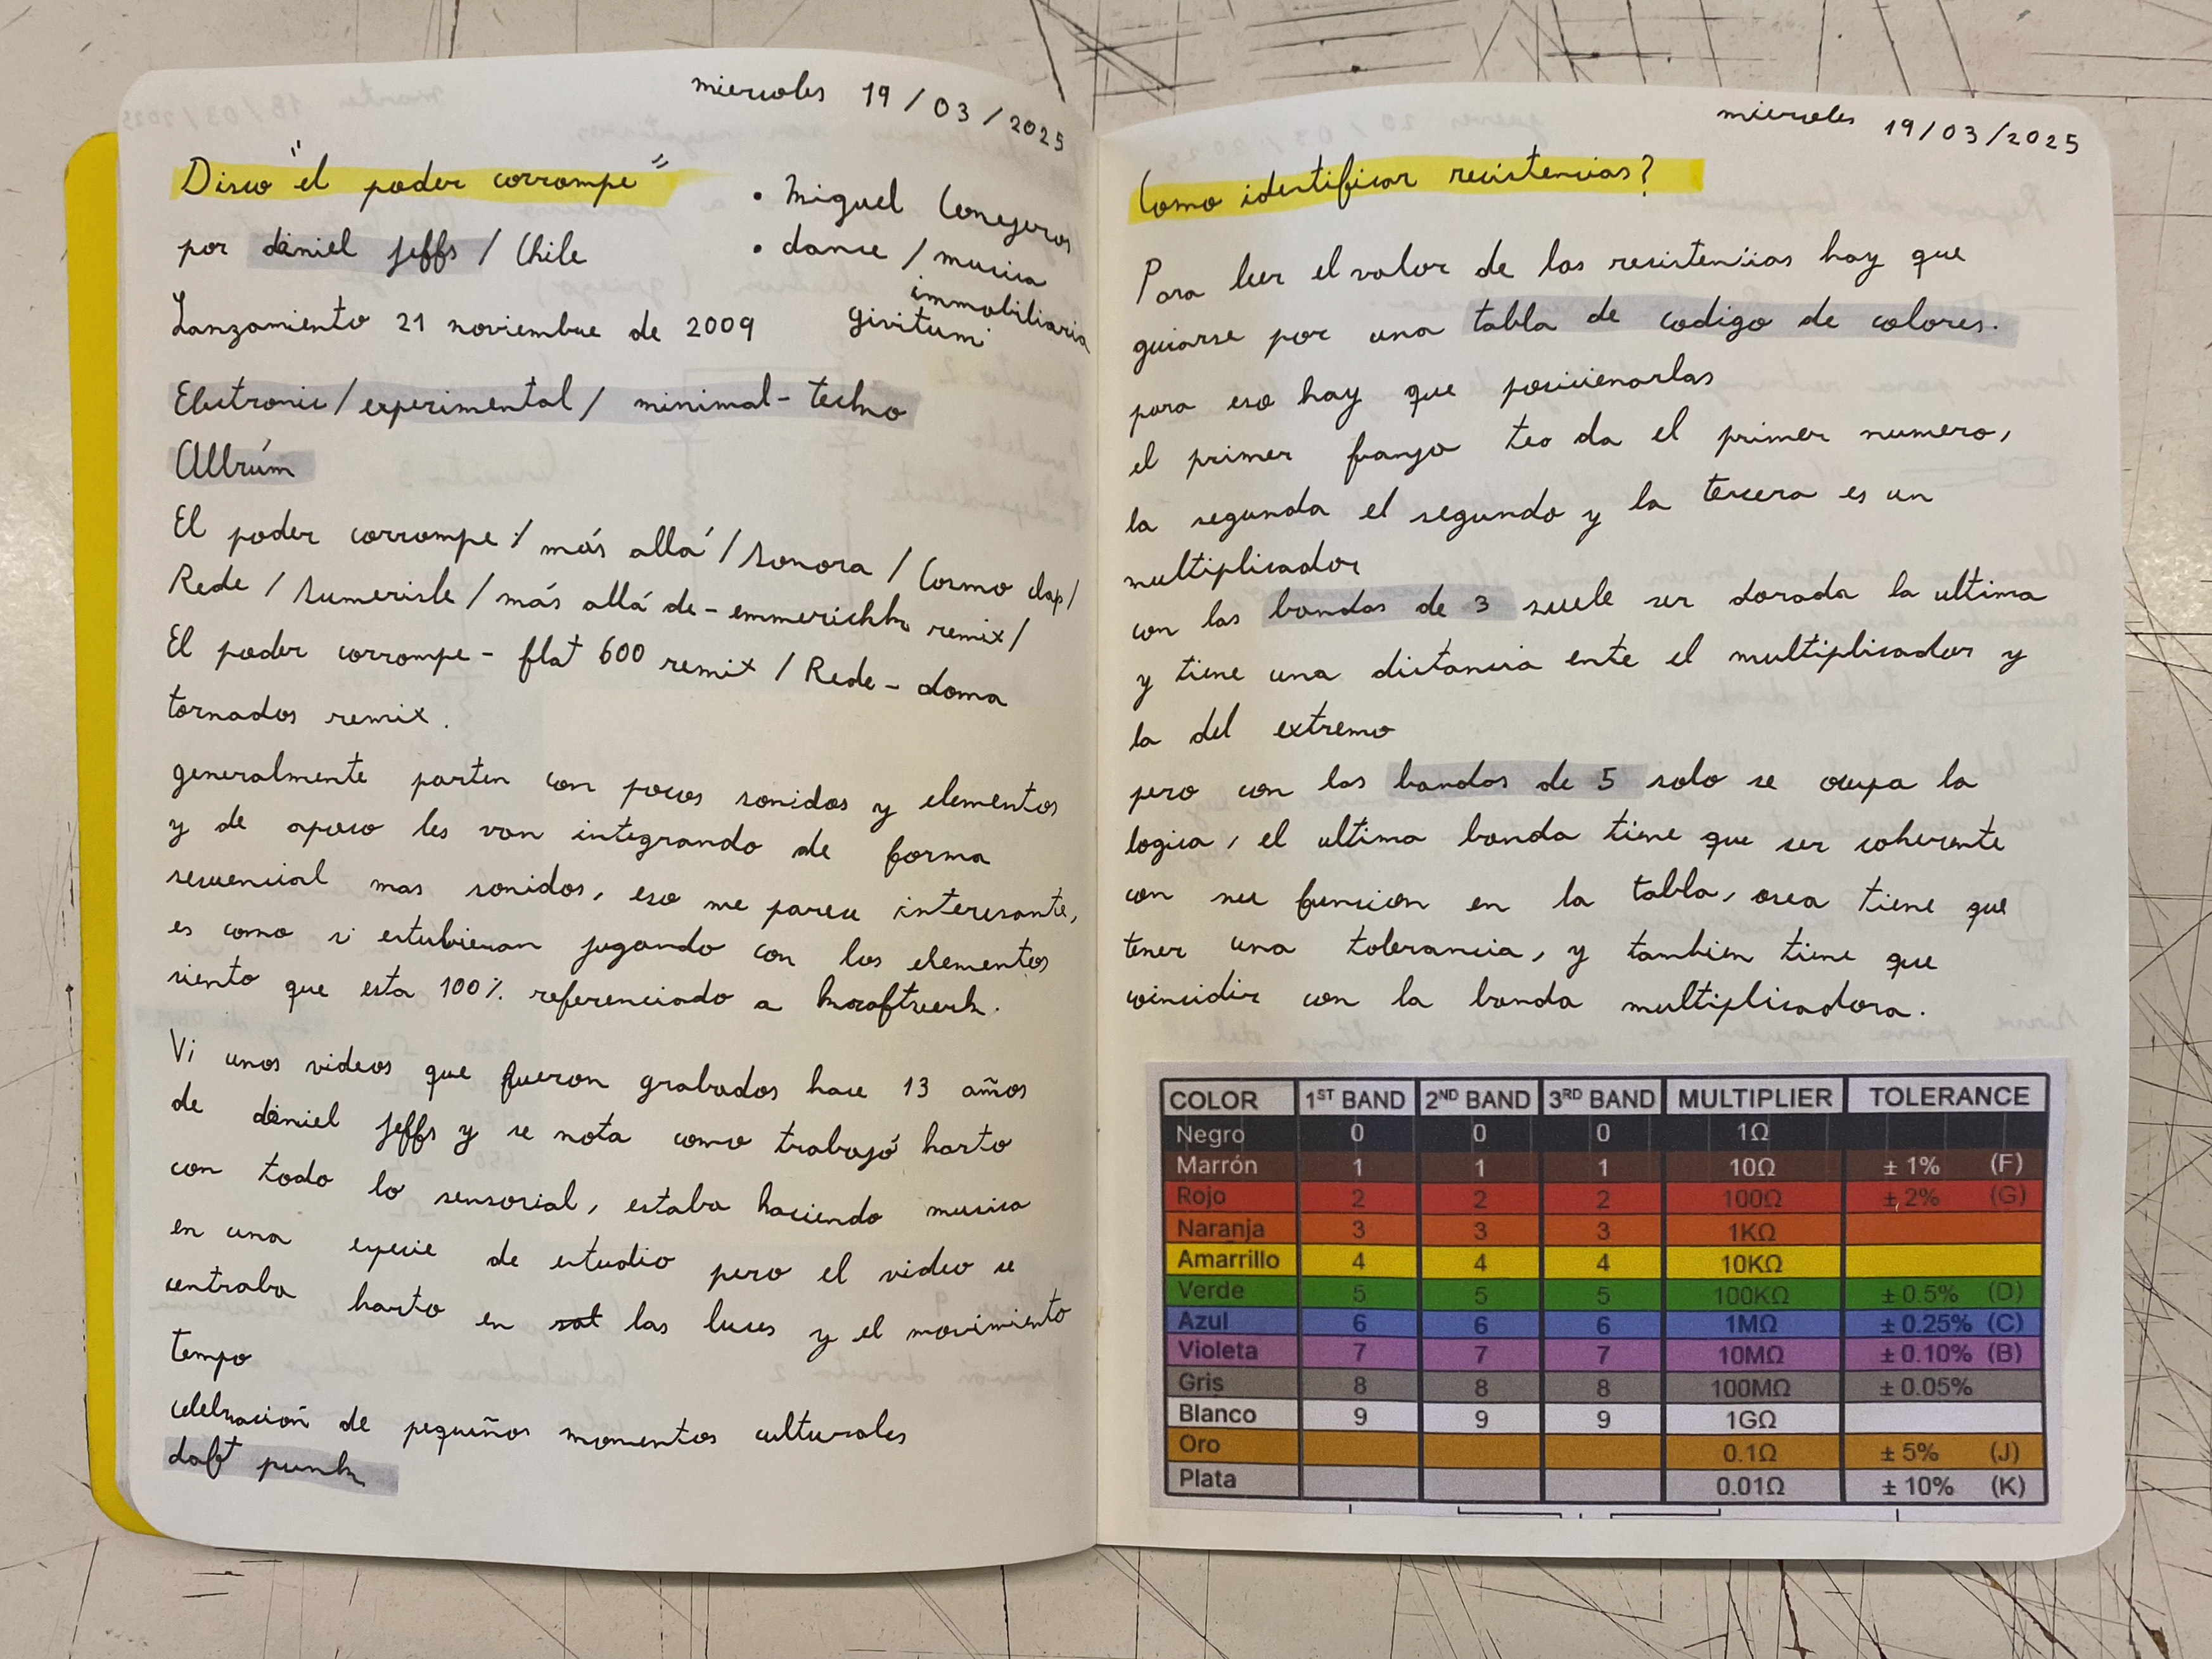 miercoles 19/03/2025
Disco "el poder corrompe"
por daniel jeffs / Chile
Lanzamiento 21 noviembre de 2009
• Miguel Conejeros
• dance / musica
immobiliaria
givitumi
Electronic / experimental / minimal-techno
Albúm
El poder corrompe / más allá / sonora / Cosmo clap /
Rede / sumerisle / más allá de - emmerichk remix /
El poder corrompe - flat 600 remix / Rede - doma
tornados remix.
generalmente parten con pocos sonidos y elementos
y de apoco les van integrando de forma
secuencial mas sonidos, eso me parece interesante,
es como si estubieran jugando con los elementos
siento que esta 100% referenciado a kraftwerk.
Vi unos videos que fueron grabados hace 13 años
de daniel jeffs y se nota como trabajó harto
con todo lo sensorial, estaba haciendo musica
en una especie de estudio pero el video se
centraba harto en las luces y el movimiento
tempo
celebración de pequeños momentos culturales
daft punk
miercoles 19/03/2025
Como identificar resistencias?
Para leer el valor de las resistencias hay que
guiarse por una tabla de codigo de colores.
para eso hay que posicionarlas
el primer franja teo da el primer numero,
la segunda el segundo y la tercera es un
multiplicador
con las bandas de 3 suele ser dorada la ultima
y tiene una distancia ente el multiplicador y
la del extremo
pero con las bandas de 5 solo se ocupa la
logica, el ultima banda tiene que ser coherente
con su funcion en la tabla, osea tiene que
tener una tolerancia, y tambien tiene que
coincidir con la banda multiplicadora.
COLOR 1ST BAND 2ND BAND 3RD BAND MULTIPLIER TOLERANCE
Negro 0 0 0 1Ω
Marrón 1 1 1 10Ω ± 1% (F)
Rojo 2 2 2 100Ω ± 2% (G)
Naranja 3 3 3 1KΩ
Amarrillo 4 4 4 10KΩ
Verde 5 5 5 100KΩ ± 0.5% (D)
Azul 6 6 6 1MΩ ± 0.25% (C)
Violeta 7 7 7 10MΩ ± 0.10% (B)
Gris 8 8 8 100MΩ ± 0.05%
Blanco 9 9 9 1GΩ
Oro 0.1Ω ± 5% (J)
Plata 0.01Ω ± 10% (K)